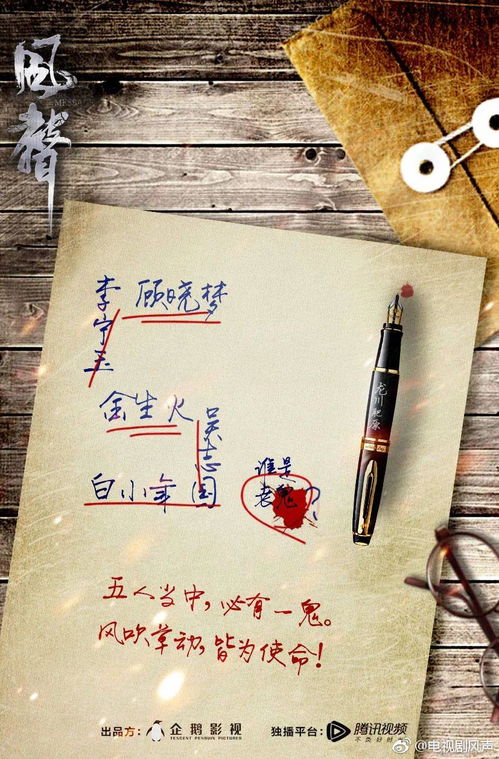 风声
MESSA
李宁玉
顾晓梦
金生火
吴志国
白小年
谁是
老鬼?
龙川肥原
五人当中,必有一鬼。
风吹草动,皆为使命!
出品方: 企鹅影视 独播平台: 腾讯视频
TENCENT PENGUIN PICTURES 不负好时光
@电视剧风声